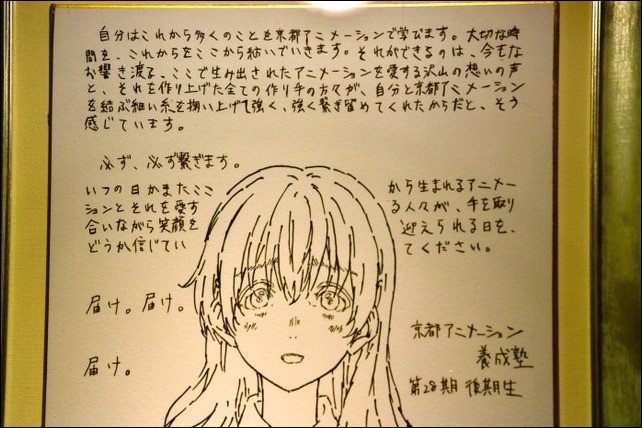 自分はこれから多くのことを京都アニメーションで学びます。大切な時
間を、これからをここから紡いでいきます。それができるのは、今もな
お響き渡る、ここで生み出されたアニメーションを愛する沢山の想いの声
と、それを作り上げた全ての作り手の方々が、自分と京都アニメーション
を結ぶ細い糸を掬い上げて強く、強く繋ぎ留めてくれたからだと、そう
感じています。
必ず、必ず繋ぎます。
いつの日かまたここから生まれるアニメー
ションとそれを愛する人々が、手を取り
合いながら笑顔を迎えられる日を、
どうか信じていてください。
届け。届け。
届け。
京都アニメーション
養成塾
第28期 後期生